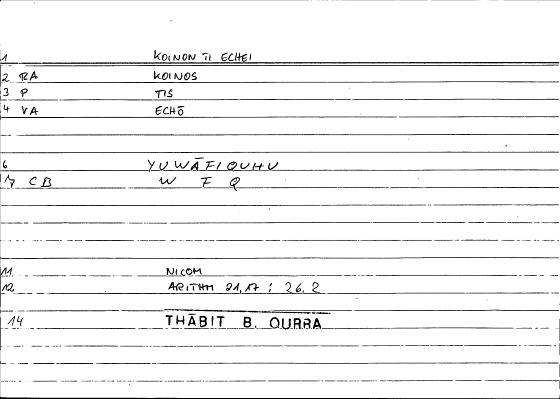 1 KOINON TI ECHEI
2 RA KOINOS
3 P TIS
4 VA ECHŌ
6 YUWĀFIQUHU
7 CB W F Q
11 NICOM
12 ARITHM 21,17 : 26.2
14 THĀBIT B. QURRA